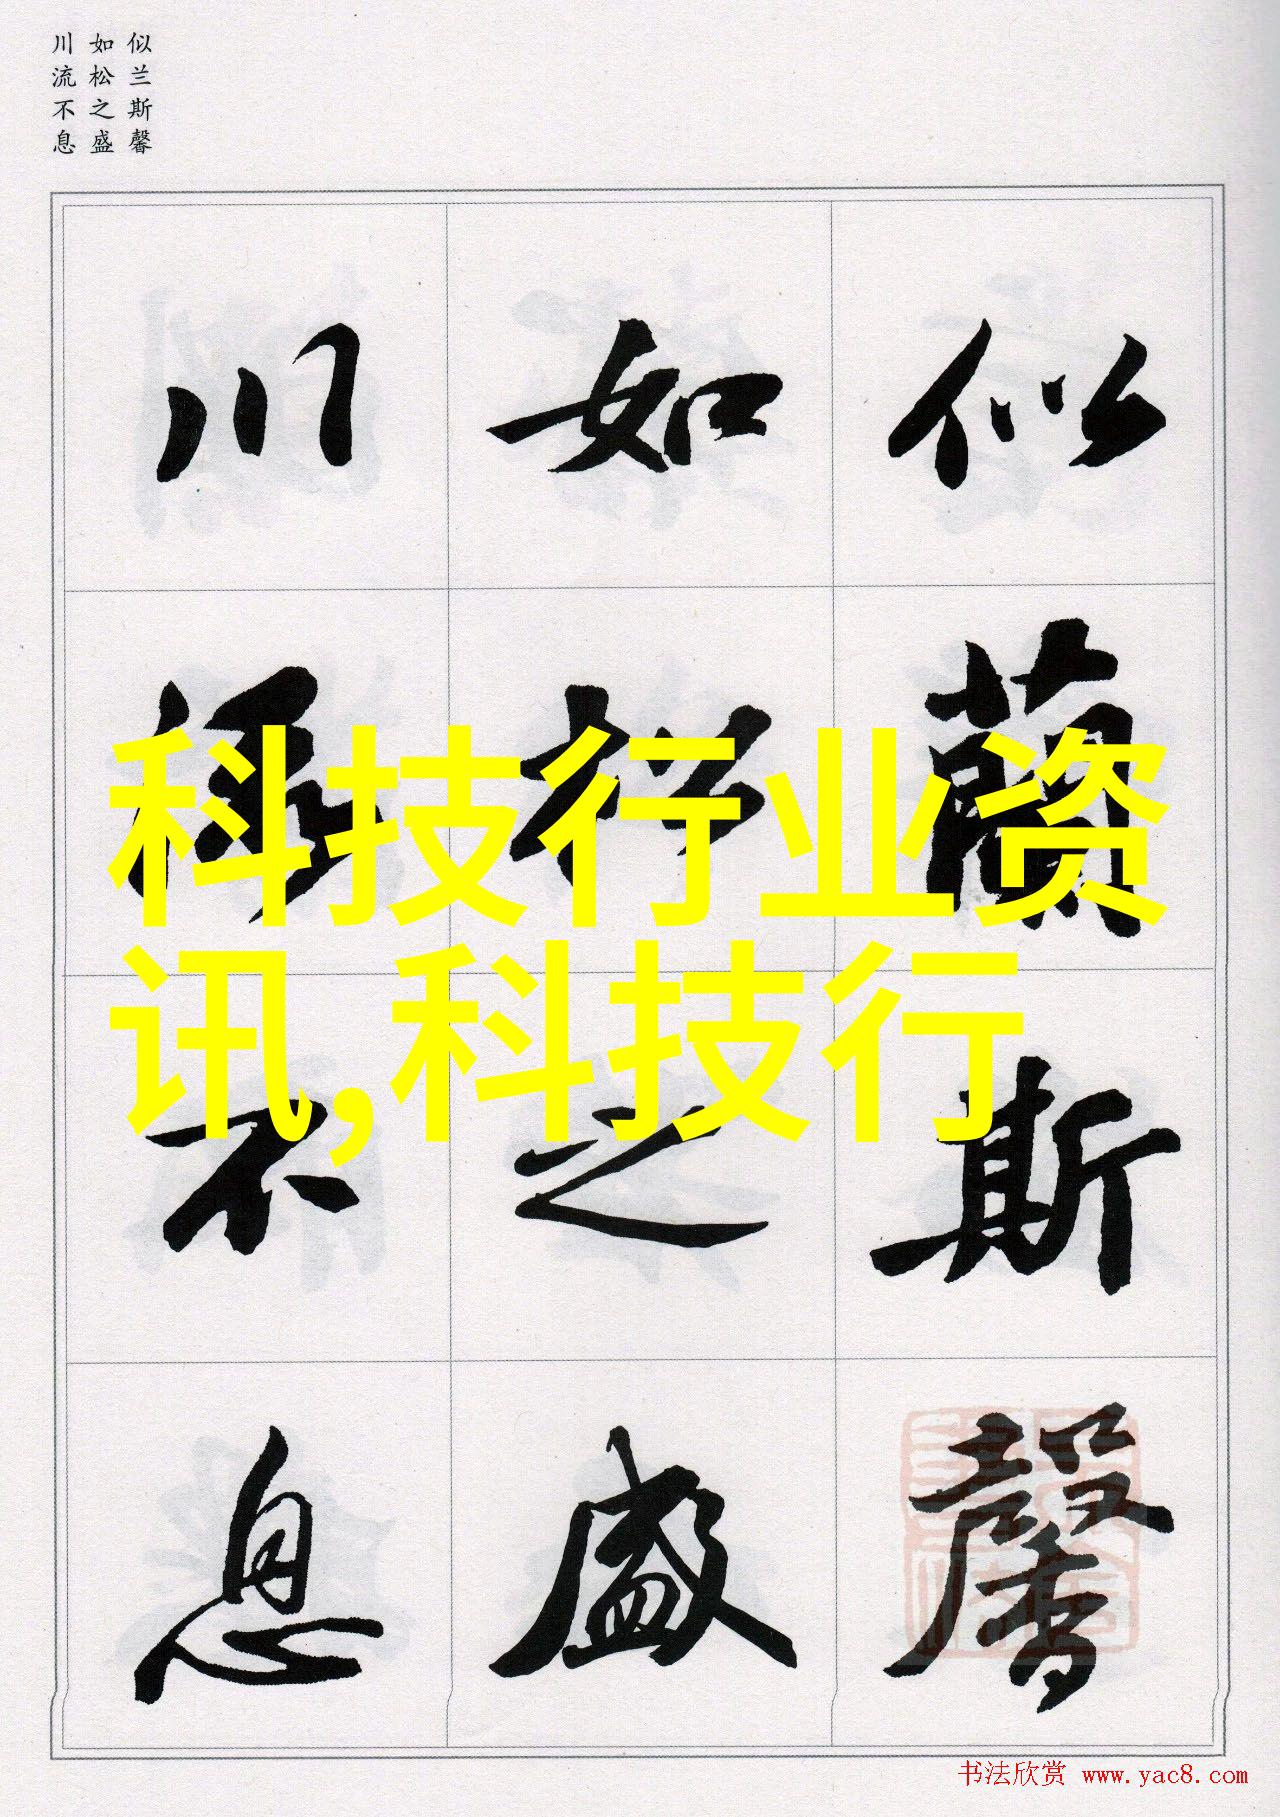 似兰斯馨
如松之盛
川流不息
似蘭斯馨
如松之盛
川流不息
科技行业资
讯,科技行
书法欣赏 www.yac8.com